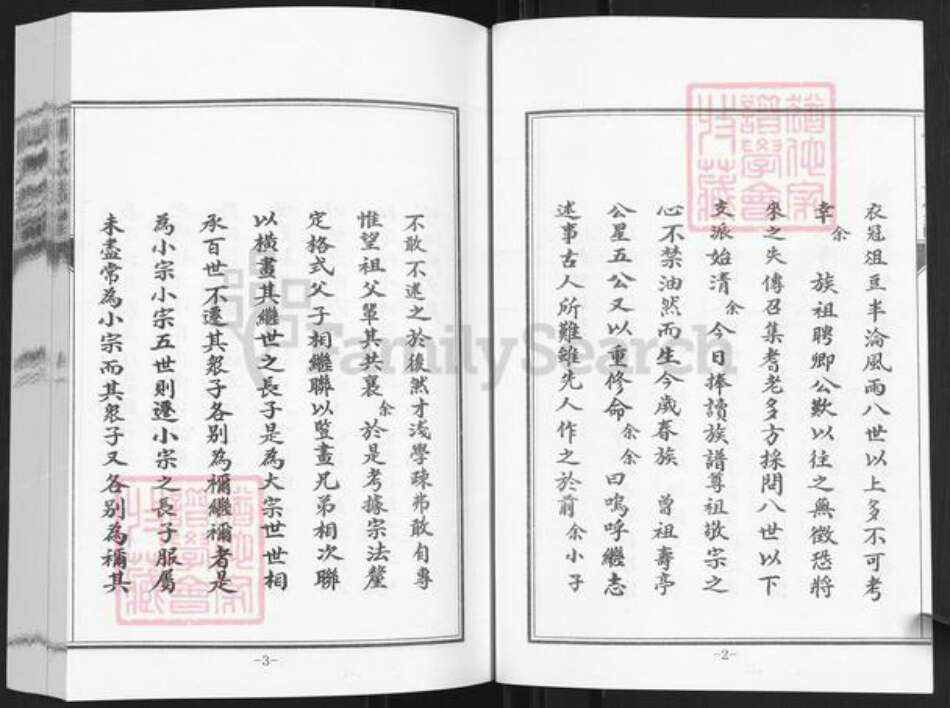 衣冠俎豆半淪風雨八世以上多不可考
幸余族祖聘卿公歎以往之無徵恐將
來之失傳召集耆老多方採問八世以下
支派始清余今日捧讀族譜尊祖敬宗之
心不禁油然而生今歲春族曾祖壽亭
公星五公又以重修命余余曰嗚呼繼志
述事古人所難雖先人作之於前余小子
-2-
不敢不述之於後然才淺學疎弗敢自專
惟望祖父輩其共襄余於是考據宗法釐
定格式父子相繼聯以豎畫兄弟相次聯
以橫畫其繼世之長子是為大宗世世相
承百世不遷其眾子各別為禰繼禰者是
為小宗小宗五世則遷小宗之長子服屬
未盡常為小宗而其眾子又各別為禰其
-3-
FamilySearch